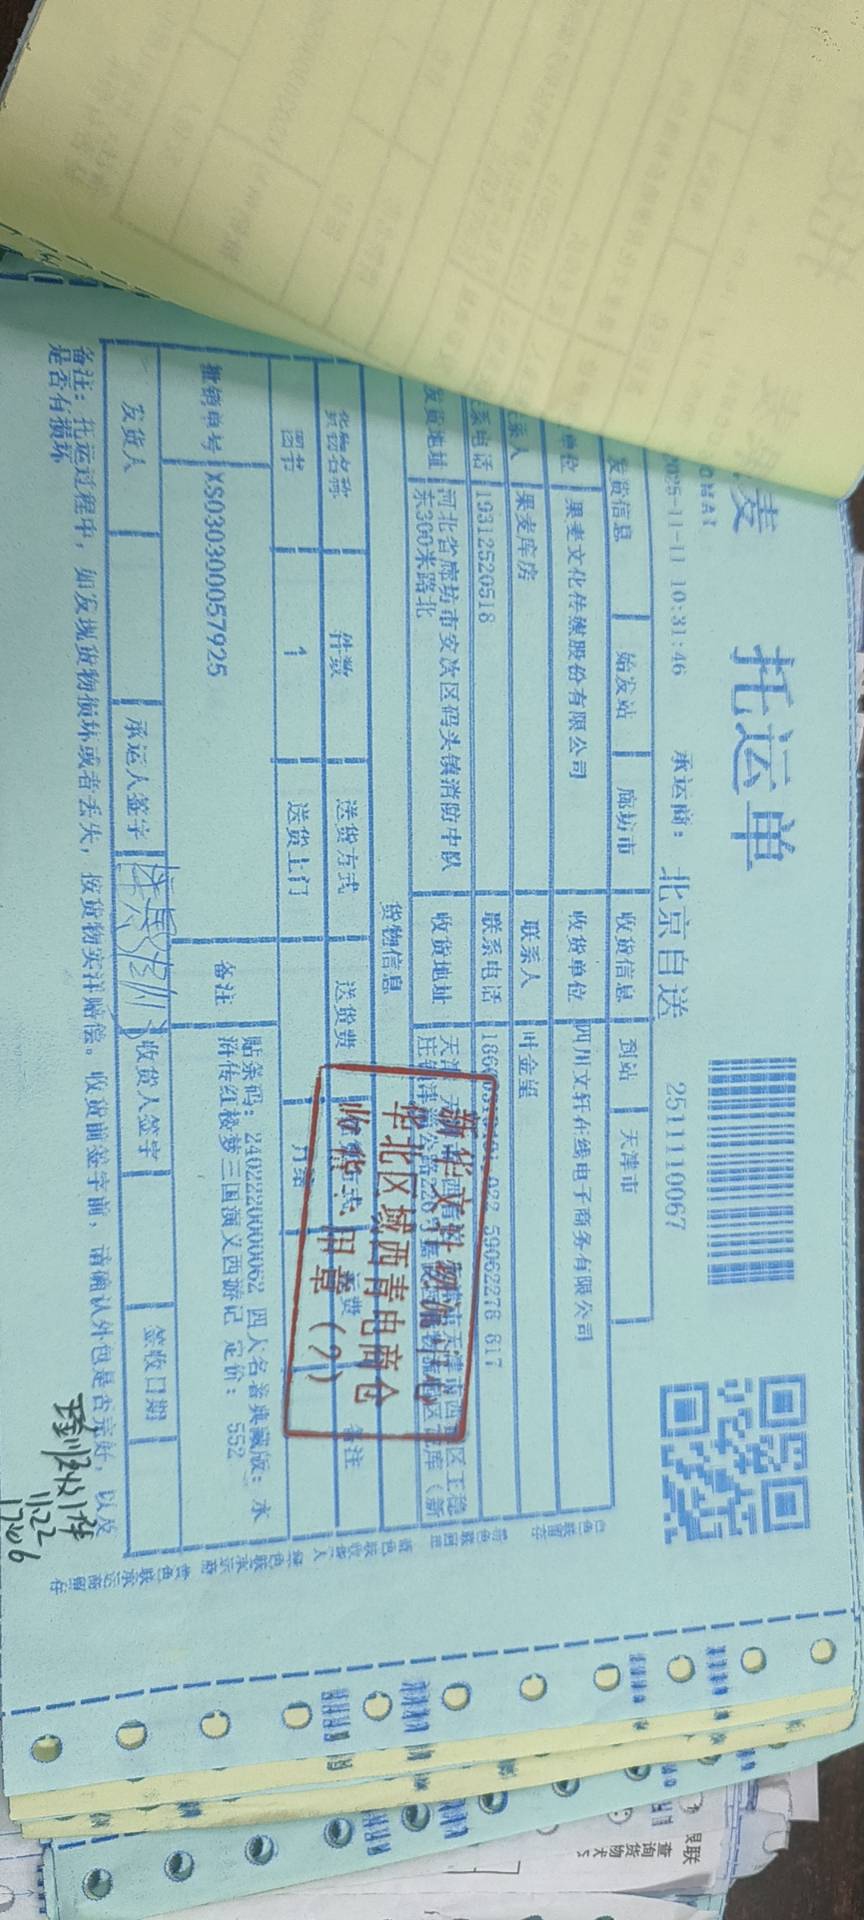 麦
托运单
2025-11-11 10:31:46 承运商： 北京自送 2511110067
发货信息 始发站 廊坊市 收货信息 到站 天津市
单位 果麦文化传媒股份有限公司 收货单位 四川文轩在线电子商务有限公司
系人 果麦库房 联系人 叶金望
系电话 19312520518 联系电话 59062278 817
发货地址 河北省廊坊市安次区码头镇消防中队
东300米路北 收货地址 天津
货物信息
货物名称 件数 送货方式 送货费 运费 备注
图书 1 送货上门 月结
批销单号 XS030300057925 备注 贴条码：2402220000062 四大名著典藏版：水
浒传红楼梦三国演义西游记 定价：552
发货人 承运人签字 收货人签字 签收日期
备注：托运过程中，如发现货物损坏或者丢失，按货物实洋赔偿。收货前签字前，请确认外包是否完好，以及
是否有损坏
新华文轩物流
华北区域西青电商仓
收货专用章（2）
实收1件
11.22
白色联留存
查询货物